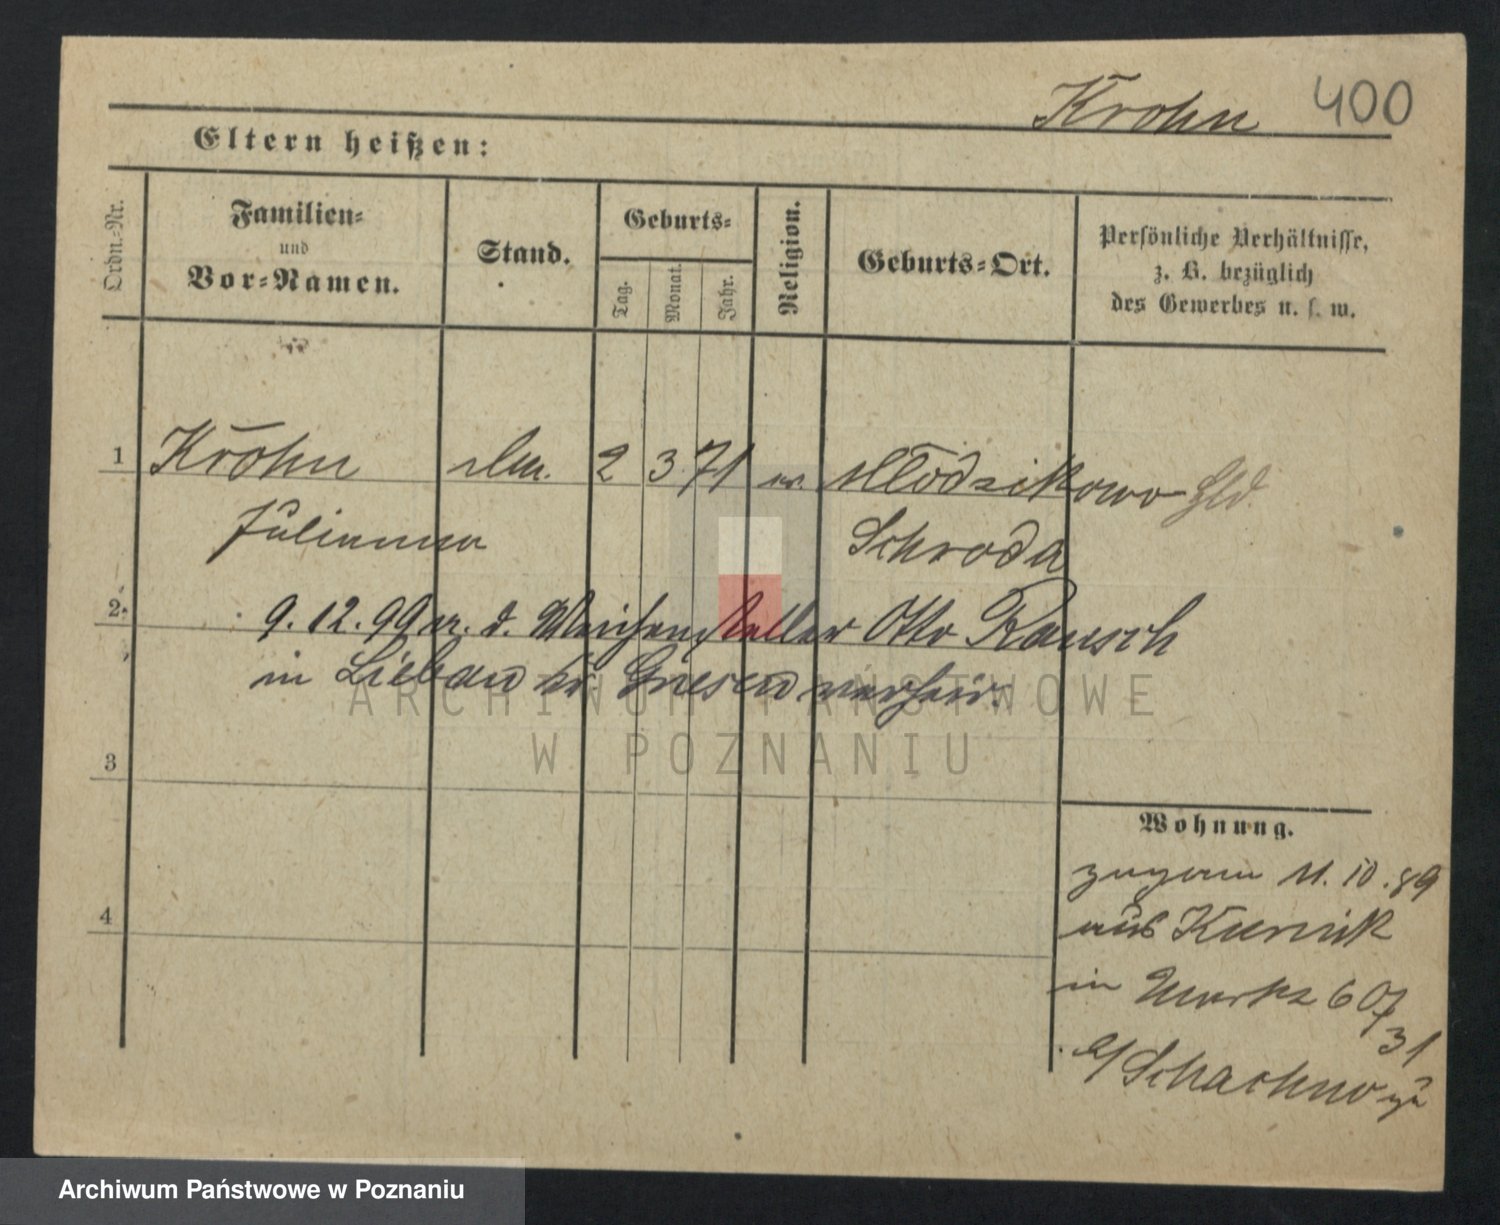 Krohn 400
Eltern heißen:
Ordn.-Nr.
Familien-
und
Vor-Namen.
Stand.
Geburts-
Tag. Monat. Jahr.
Religion.
Geburts-Ort.
Persönliche Verhältnisse,
z. B. bezüglich
des Gewerbes u. s. w.
1 Krohn 2 3 71 ev. Młodzikowo Hld.
Julianna Schroda
2. 9. 12. 99 m. d. Weichensteller Otto Rausch
in Liebau Kr. Gnesen verheir.
3
4
Wohnung.
zugezogen 11. 10. 89
aus Kurnik
in 60/31
b/
ARCHIWUM PAŃSTWOWE
W POZNANIU
Archiwum Państwowe w Poznaniu